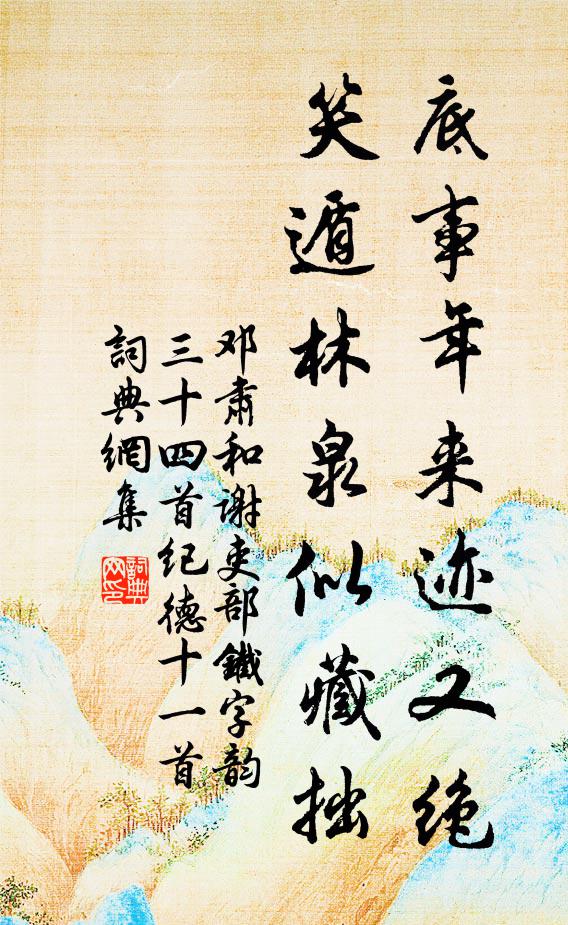 底事年来迹又绝
笑遁林泉似藏拙
邓肃和谢吏部鐵字韵
三十四首纪德十一首
詞典網集
詞典
网印